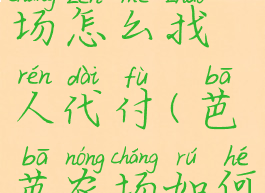 场怎么找
rén dài fù bā
人代付(芭
bā nóng cháng rú hé
芭农场如何